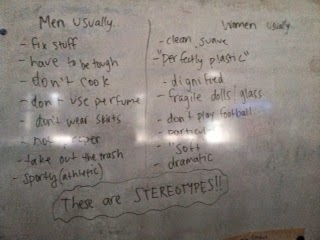 Men usually
- fix stuff
- have to be tough
- don't cook
- don't use perfume
- don't wear skirts
- not
- take out the trash
- sporty (athletic)
Women usually
- clean, suave
- "perfectly plastic"
- dignified
- fragile dolls/glass
- don't play football
- particular
- "soft
- dramatic
These are STEREOTYPES!!